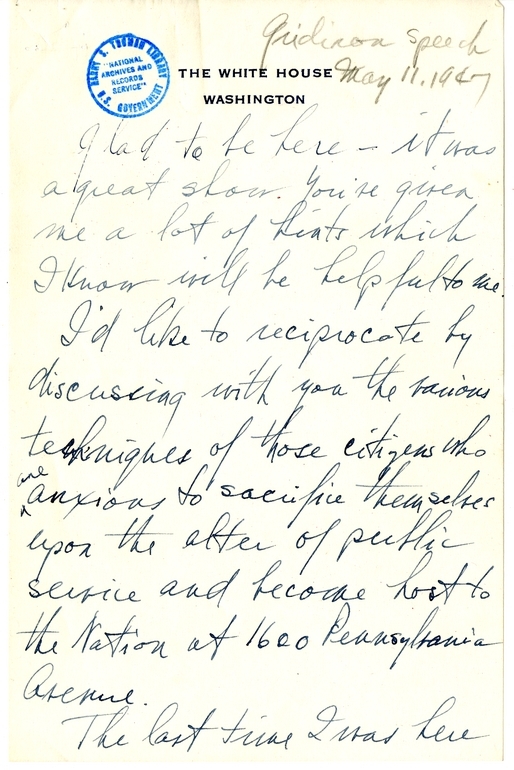 Gridiron speech
May 11, 1947
HARRY S. TRUMAN LIBRARY
"NATIONAL
ARCHIVES AND
RECORDS
SERVICE"
U.S. GOVERNMENT
THE WHITE HOUSE
WASHINGTON
Glad to be here – it was
a great show. You've given
me a lot of hints which
I know will be helpful to me.
I'd like to reciprocate by
discussing with you the various
techniques of those citizens who
are
anxious to sacrifice themselves
upon the alter of public
service and become host to
the Nation at 1600 Pennsylvania
Avenue.
The last time I was here